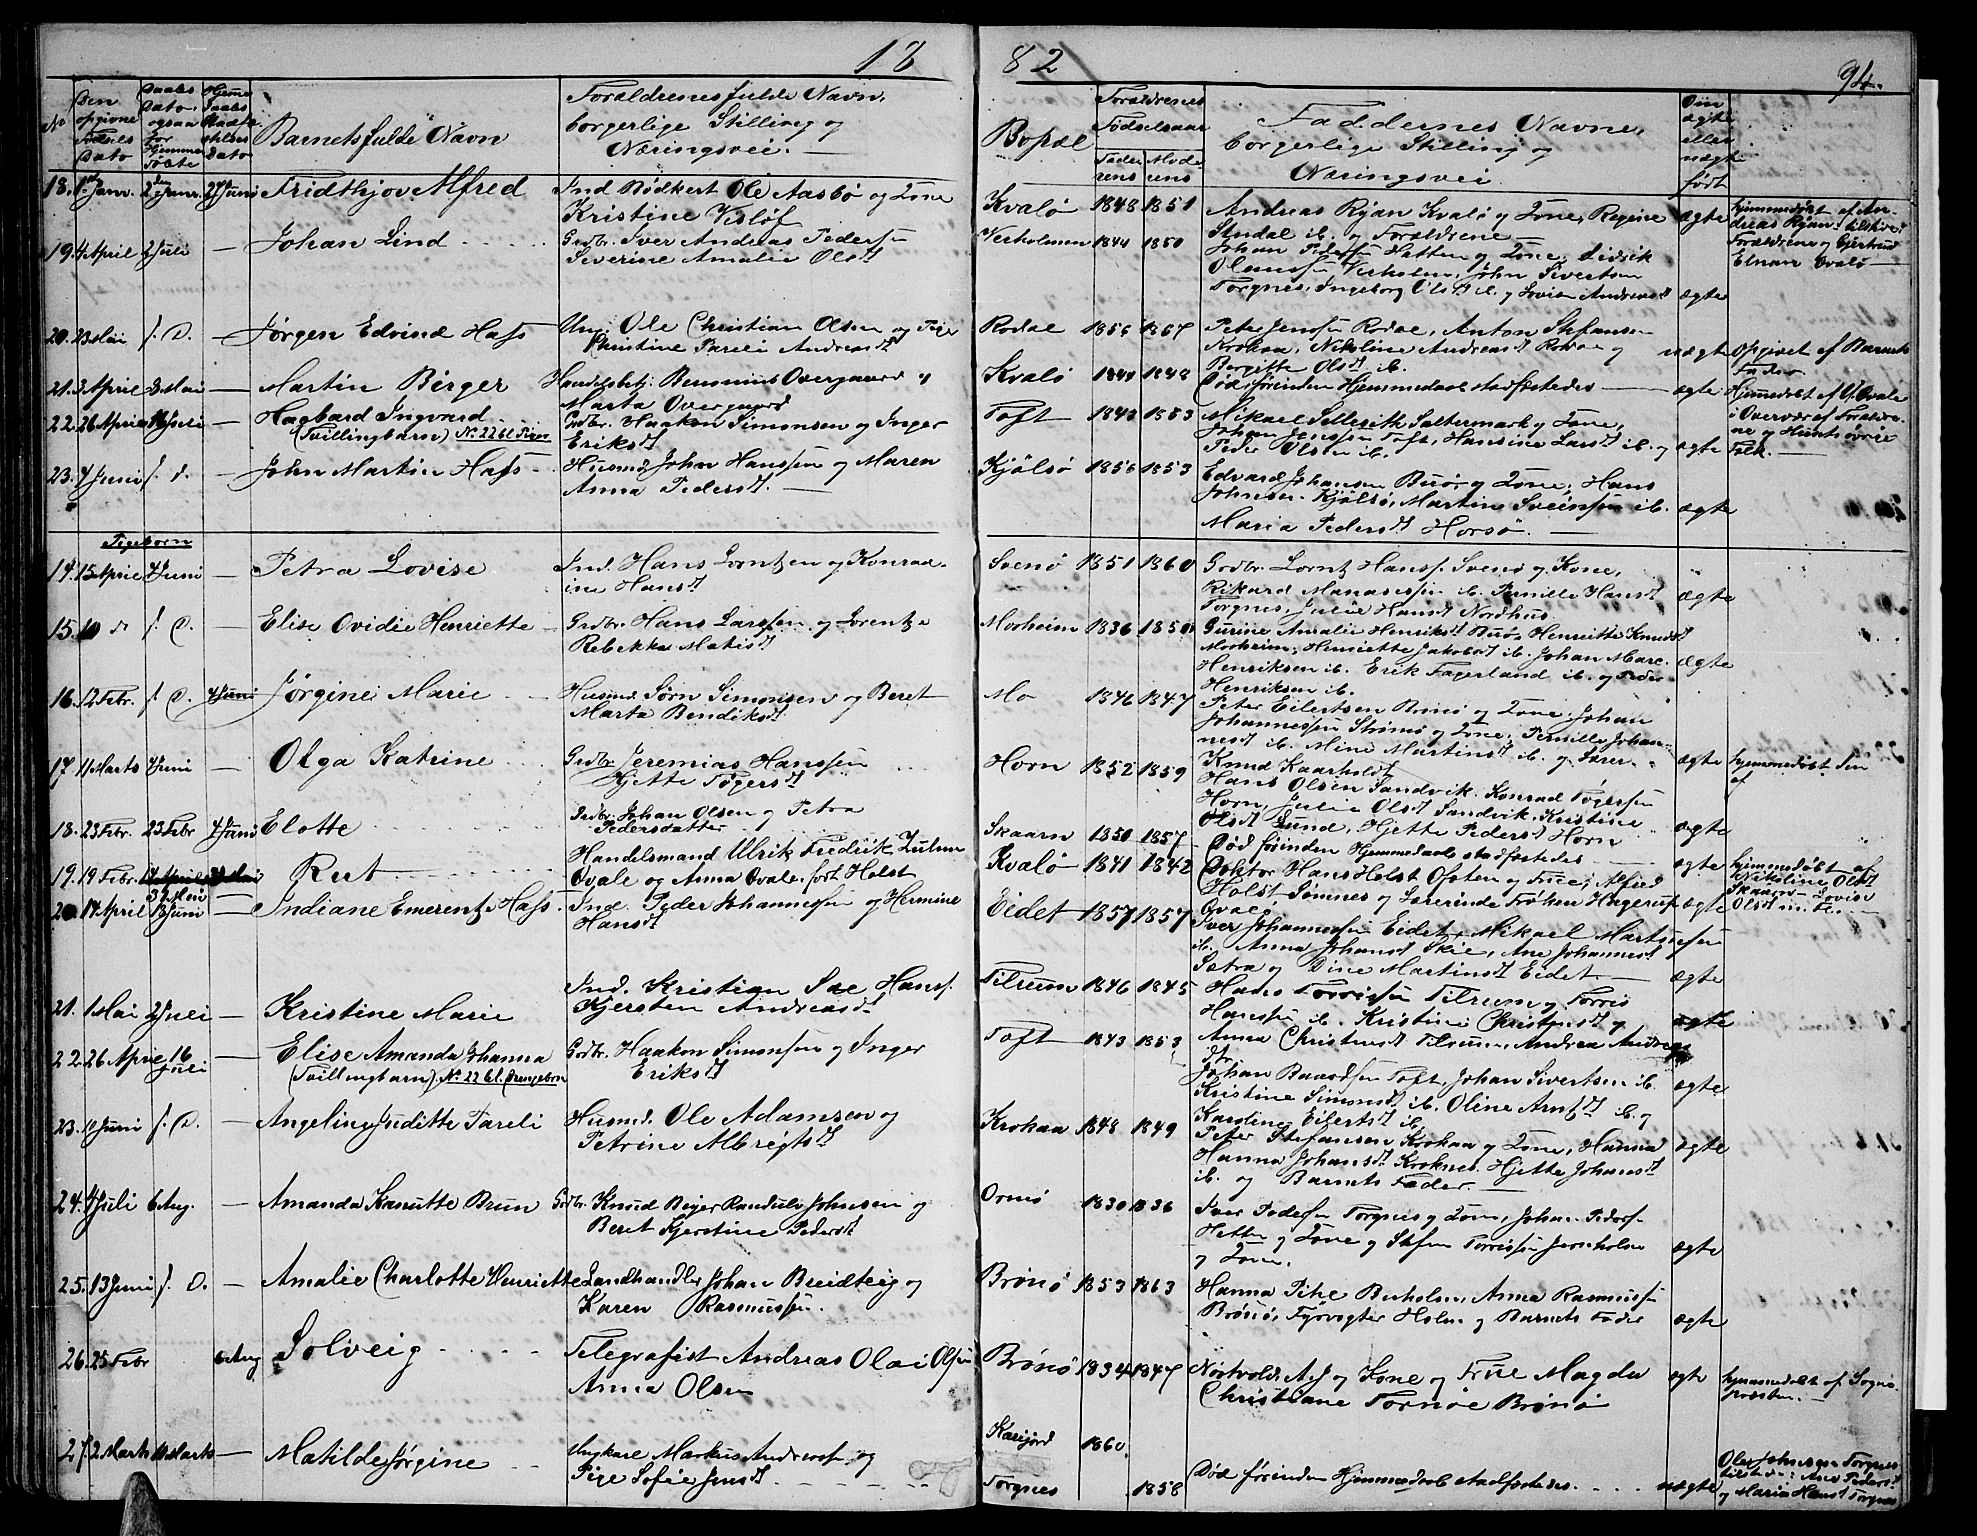 18 82 94.
No
Den opgivne Fødsels Dato
Daabs Dato, ogsaa for Hjemme Døbte
Hjemme Daabs Stadfæstelses Dato
Barnets fulde Navn
Forældrenes fulde Navn, borgerlige Stilling og Næringsvei.
Bopæl
Forældrenes Fødselsaar
Faderens Moderens
Faddernes Navne, borgerlige Stilling og Næringsvei
Om ægte eller uægte født
18. 1ste Janr. 2den Janr. 2 Juni Fridthjov Alfred
Ind. Bødkert Ole Aasbø og Kone
Kristine Visløf
Kvalø 1848 1851
Andreas Ryan Kvalø og Kone, Regine
Stendal ib. og Forældrene
ægte
hjemmedøbt af An-
dreas Ryan, tilstede
Forældrene og Gjertrud
Elnan Kvalø
19. 4 April 2 Juli — Johan Lind
Grdbr. Iver Andreas Pedersen
Severine Amalie Olsdt
Verholmen 1844 1850
Johan Pedersen Hatten og Kone, Didrik
Olaussen Verholm, John Sivertsen
Torgnes, Ingeborg Olsdt ib. og Lovise Andreasdt
ægte
20. 23 Mai s. D. — Jørgen Edvind Hafs
Ung. Ole Christian Olsen og Pige
Christine Pareli Andreasdt
Rodal 1856 1867
Peter Jensen Rodal, Anton Stefansen
Krokaa, Nikoline Andreasdt Rodal og
Bergitte Olsdt ib.
uægte Opgivet af Barnets
Fader
21. 3 April 3 Mai — Martin Birger
Handelsbetj. Benonius Overgaard og
Marta Overgaard
Kvalø 1848
Død førinden Hjemmedaab stadfæstedes
ægte
22. 26 April 16 Juli Hagbard Ingvard
(Tvillingbarn) No. 22 bl. Piger
Grdbr. Haakon Simonsen og Inger
Eriksdt
Toft 1843 1853
Johan Jensen Toft, Hansine Larsdt ib. og
Peder Olsen ib.
ægte
23. 4 Juni s. d. — John Martin Hafs
Husmd John Hanssen og Maren
Anna Pedersdt
Kjølsø 1856 1853
Edvard Johansen Buø og Kone, Hans
Johnsen Kjølsø, Martin Sveinsen ib.
Maria Pedersdt Horsø.
ægte
Pigebørn
14. 15 April 4 Juni — Petra Lovise
Ind. Hans Lorntzen og Konrad-
ine Hansdt
Svenø 1851 1860
Grdbr. Lorntz Hanss. Svenø og Kone,
Rikard Manassesen ib. Pernille Hansdt
Torgnes, Julie Hansdt Nordhus
ægte
15. 10 d s. D. — Elise Ovidie Henriette
Grdbr. Hans Larssen og Lorentze
Rebekka Matisdt
Moeheim 1836 1850
Gurine Amalie Henriksdt Buø, Henriette Knudsdt
Moeheim, Henriette Jakobsdt ib. Johan Marc.
Henriksen ib. Erik Fagerland ib. og Peder
Henriksen ib.
ægte
16. 12 Febr. s. D. 4 Juni Jørgine Marie
Husmd Sørn Simonsen og Beret
Marta Bendiksdt
Mo 1846 1847
Peter Eilertsen Brønø og Kone, Johan
Johannessen Strømø og Kone, Pernille Johan-
nesdt ib. Mine Martinsdt ib. og Lærer
Knud Kaarholdt
ægte
17. 11 Marts 4 Juni — Olga Katrine
Grdbr. Jeremias Hanssen
Hjette Tøgersdt
Horn 1852 1859
Hans Olsen Sandvik, Konrad Tøgersen
Horn, Julie Olsdt Sandvik, Kristine
Olsdt Lund, Hjette Pedersdt Horn
ægte
18. 23 Febr. 23 Febr 4 Juni Elotte
Grdbr. Johan Olsen og Petra
Pedersdatter
Skaarn 1850 1857
Død førinden Hjemmedaab stadfæstedes
ægte hjemmedøbt af
Nikoline Olsdt
Skaarn, Lovise
Olsdt m. fl.
19. 19 Febr. Rut
Handelsmand Ulrik Fredrik Zulum
Qvale og Anna Qvale, født Holst
Kvalø 1841 1842
Doktor Hans Holst Ofoten og Frue, Alfred
Holst, Sømnes og Lærerinde Frøken Hagerup
Qvale
ægte
20. 14 April 18 Juni — Indiane Emerentze Hafs.
Ind. Peder Johannessen og Hermine
Hansdt
Eidet 1857 1857
Iver Johannessen Eidet, Mikael Martinsen
ib. Anna Johansdt Skie, Ane Johannesdt
Sætra og Dine Martinsdt Eidet.
ægte
21. 1 Mai 2 Juli — Kristine Marie
Ind. Kristian Sæ Hanss.
Kjersten Andreasdt
Tilrum 1846 1845
Hans Torrissen Tilrum og Torris
Hanssen ib. Kristine Christensdt og
Anna Christensdt Tilrum, Andrea Andreas
dtr.
ægte
22. 26 April 16 Juli — Elise Amanda Johanna
(Tvillingbarn) No. 22 bl. Drengebørn
Grdbr. Haakon Simonsen og Inger
Eriksdt
Toft 1843 1853
Johan Baardsen Toft, Johan Sivertsen ib.
Kristine Simonsdt ib. Oline Arntsdt ib. og
Karoline Eilertsdt ib.
ægte
23. 11 Juni s. D. — Angeline Juditte Pareli
Husmd. Ole Adamsen og
Petrine Albregtsdt
Krokaa 1848 1849
Peter Stefansen Krokaa og Kone, Hanna
Hanna Johansdt Kroknes, Hjette Johansdt
ib. og Barnets Fader.
ægte
24. 4 Juli 6 Aug. — Amanda Kanutte Brun
Grdbr. Knud Beyer Randulf Johnsen og
Beret Kjerstine Pedersdt
Ormø 1830 1836
Iver Pedersen Torgnes og Kone, Johan Peders.
Hatten og Kone og Stefen Torrissen Jernholm
og Kone.
ægte
25. 13 Juni s. D. — Amalie Charlotte Henriette
Landhandler Johan Breidteig og
Karen Rasmussen.
Brønø 1853 1863
Hanna Pihe Buholm, Anna Rasmussen
Brønø, Fyrvogter Holm og Barnets Fader
ægte
26. 25 Febr 6 Aug Solveig
Telegrafist Andreas Olai Olsen
Anna Olsen
Brønø 1834 1847
Nortvold A.S. og Kone og Frue Magda
Christiane Tornøe Brønø
ægte hjemmedøbt af Sogne-
præsten.
27. 2 Marts 11 Marts — Matilde Jørgine
Ungkarl Markus Andreass. og
Pige Sofie Jensdt
Karijord 1860
Torgnes 1858
Død førinden Hjemmedaab stadfæstedes.
uægte Ole Johnsen Torgnes
tilstede: Ane Pedersdt
og Maria Hansdt Torgnes